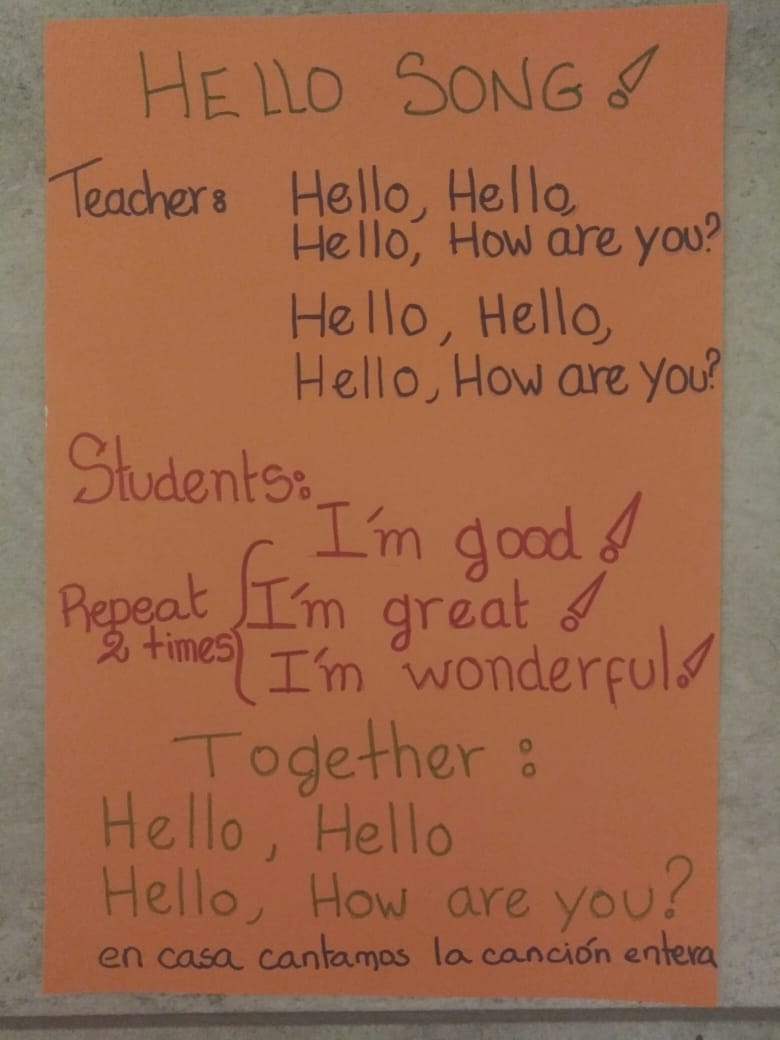 HELLO SONG!
Teacher: Hello, Hello,
Hello, How are you?
Hello, Hello,
Hello, How are you?
Students:
I'm good!
Repeat 2 times { I'm great!
I'm wonderful!
Together:
Hello, Hello
Hello, How are you?
en casa cantamos la canción entera